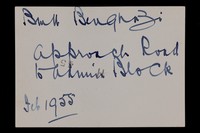 BMH Benghazi
Approach Road
to Admin Block
Feb 1955